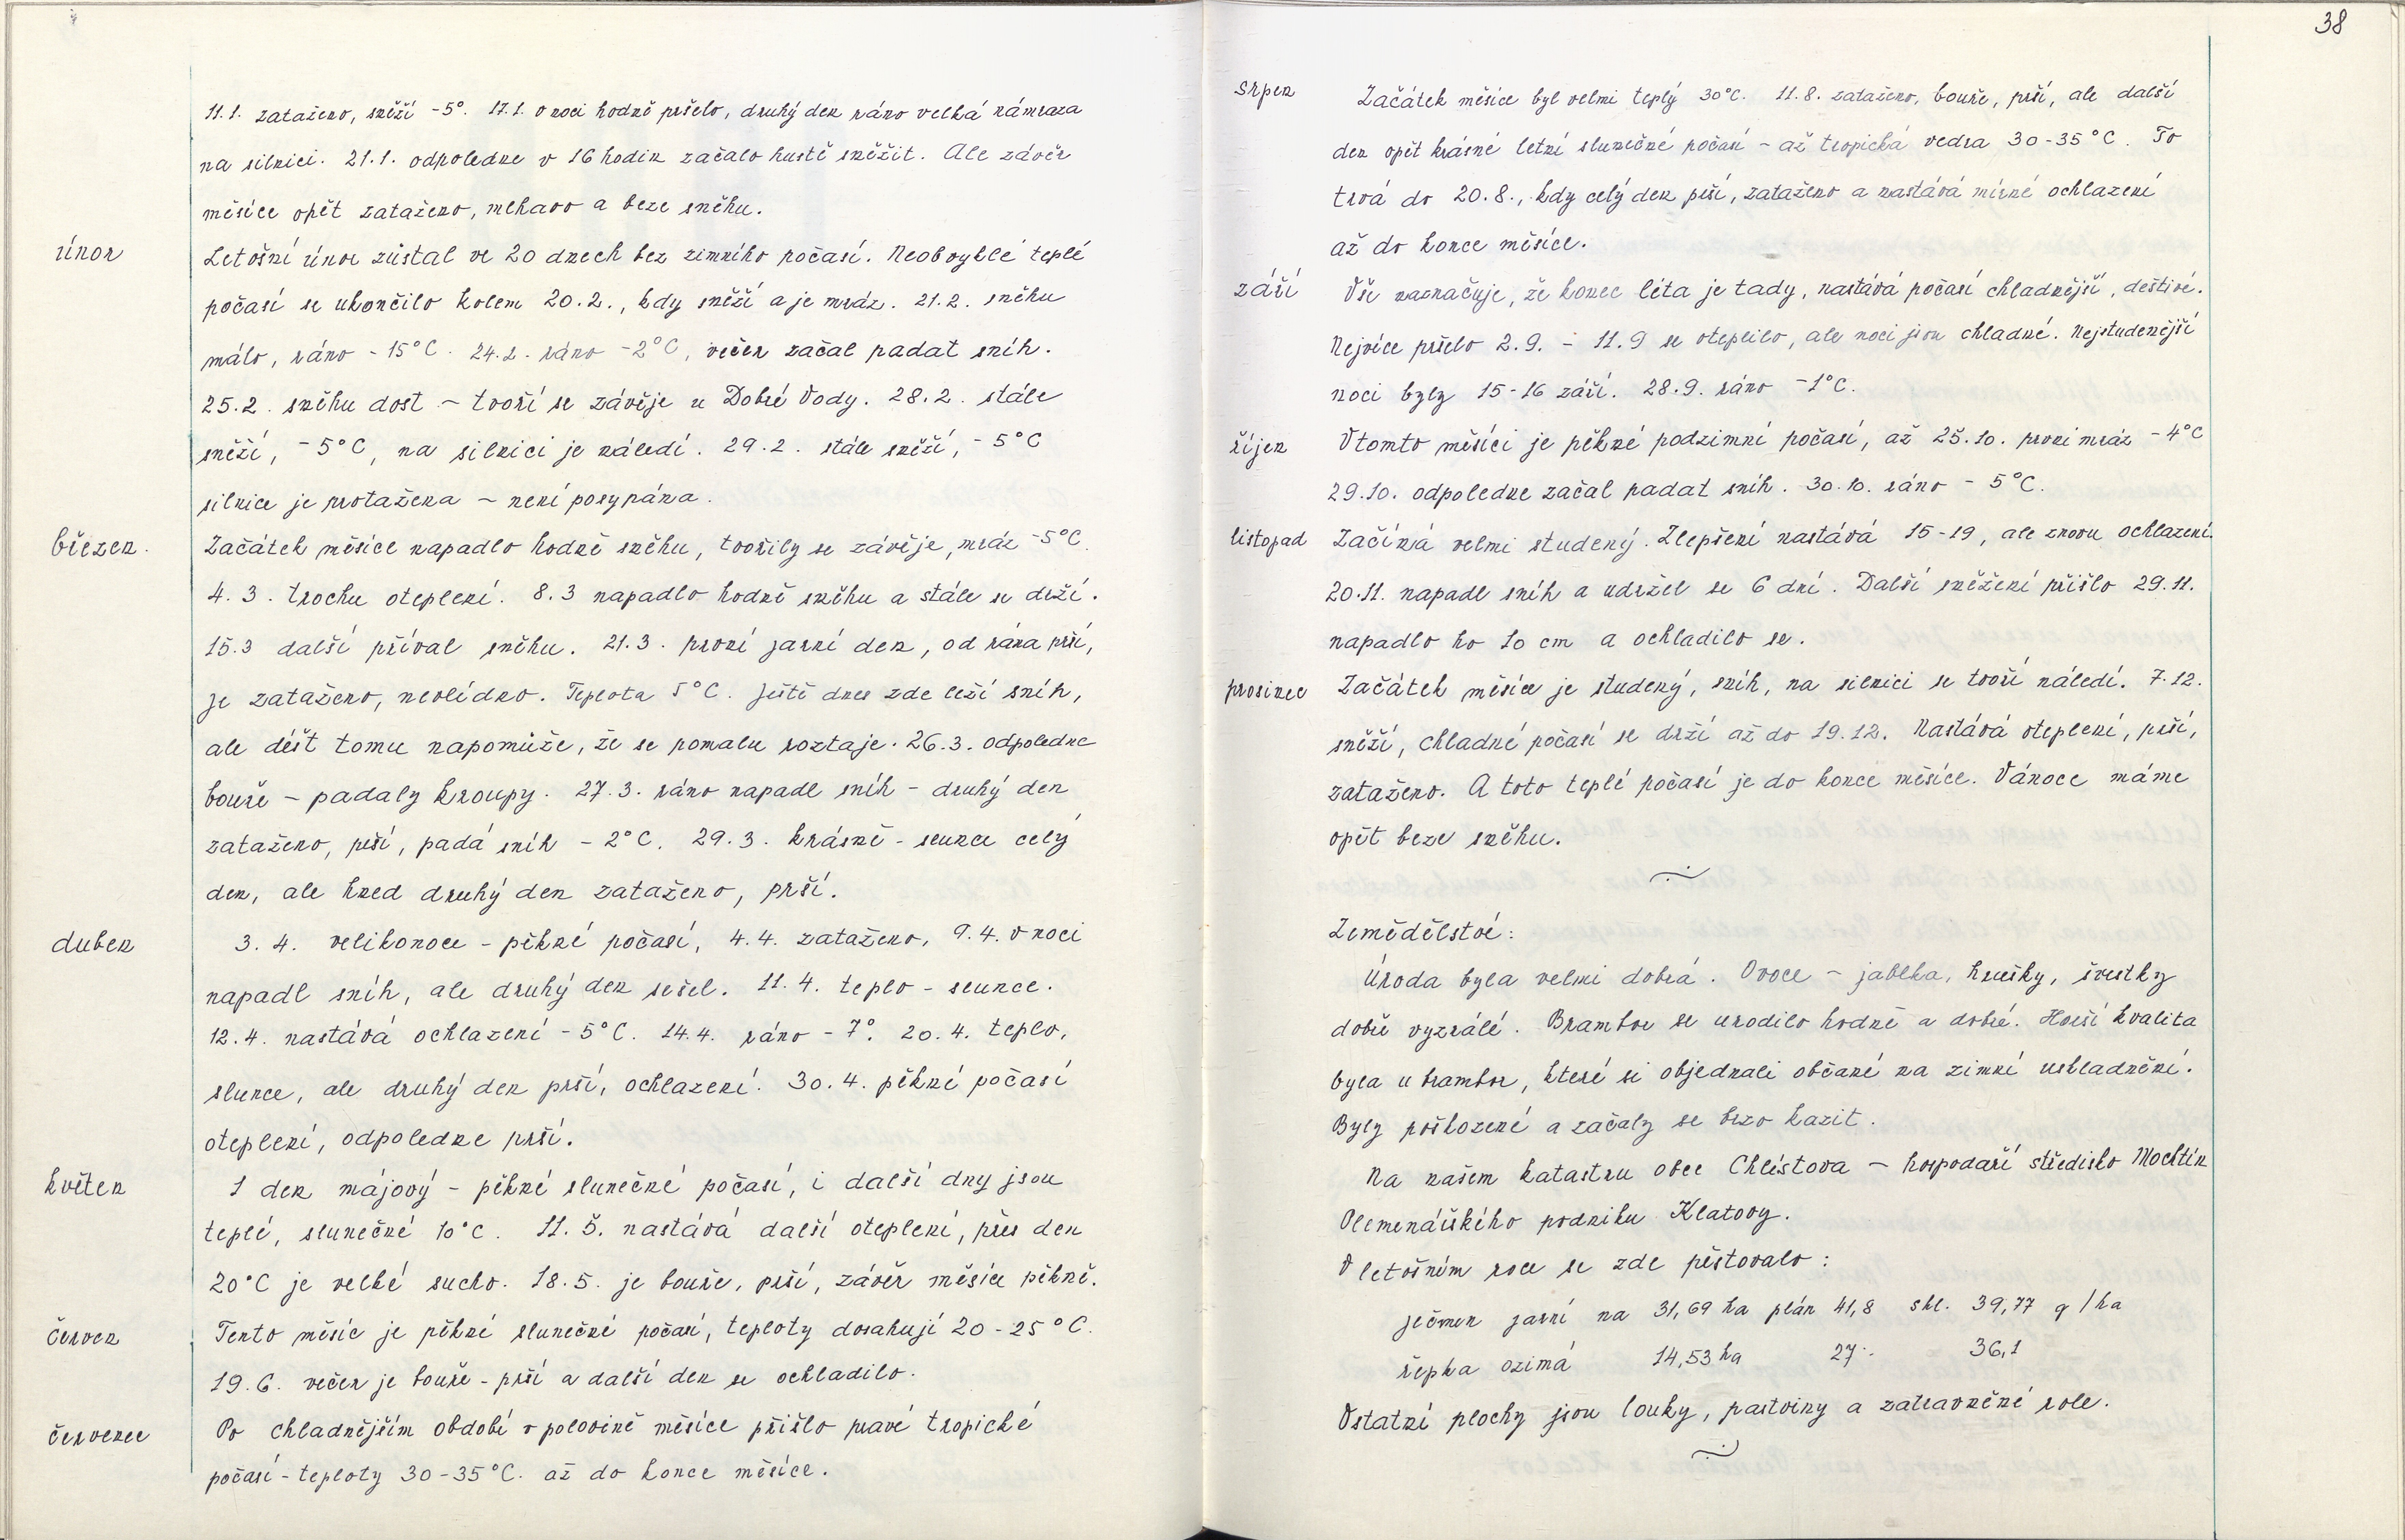 11.1. zataženo, sněží -5°. 17.1. v noci hodně pršelo, druhý den ráno velká námraza
na silnici. 21.1. odpoledne v 16 hodin začalo hustě sněžit. Ale závěr
měsíce opět zataženo, mlhavo a beze sněhu.
únor
Letošní únor zůstal ve 20 dnech bez zimního počasí. Neobvyklé teplé
počasí se ukončilo kolem 20.2., kdy sněží a je mráz. 21.2. sněhu
málo, ráno -15°C. 24.2. ráno -2°C, večer začal padat sníh.
25.2. sněhu dost - tvoří se závěje u Dobré Vody. 28.2. stále
sněží, -5°C, na silnici je náledí. 29.2. stále sněží, -5°C
silnice je protažena - není posypána.
březen.
Začátek měsíce napadlo hodně sněhu, tvořily se závěje, mráz -5°C.
4.3. trochu oteplení. 8.3 napadlo hodně sněhu a stále se drží.
15.3 další příval sněhu. 21.3. první jarní den, od rána prší,
je zataženo, nevlídno. Teplota 5°C. Ještě dnes zde leží sníh,
ale déšt tomu napomůže, že se pomalu roztaje. 26.3. odpoledne
bouře - padaly kroupy. 27.3. ráno napadl sníh - druhý den
zataženo, prší, padá sníh -2°C. 29.3. krásně - slunce celý
den, ale hned druhý den zataženo, prší.
duben
3.4. velikonoce - pěkné počasí, 4.4. zataženo, 9.4. v noci
napadl sníh, ale druhý den sešel. 11.4. teplo - slunce.
12.4. nastává ochlazení -5°C. 14.4. ráno -7°. 20.4. teplo,
slunce, ale druhý den prší, ochlazení. 30.4. pěkné počasí
oteplení, odpoledne prší.
květen
1 den májový - pěkné slunečné počasí, i další dny jsou
teplé, slunečné 10°C. 11.5. nastává další oteplení, přes den
20°C je velké sucho. 18.5. je bouře, prší, závěr měsíce pěkně.
červen
Tento měsíc je pěkné slunečné počasí, teploty dosahují 20-25°C.
19.6. večer je bouře - prší a další den se ochladilo.
červenec
Po chladnějším období v polovině měsíce přišlo pravé tropické
počasí - teploty 30-35°C. až do konce měsíce.
38
srpen
Začátek měsíce byl velmi teplý 30°C. 11.8. zataženo, bouře, prší, ale další
den opět krásné letní slunečné počasí - až tropická vedra 30-35°C. To
trvá do 20.8., kdy celý den prší, zataženo a nastává mírné ochlazení
až do konce měsíce.
září
Vše naznačuje, že konec léta je tady, nastává počasí chladnější, deštivé.
Nejvíce pršelo 2.9. - 11.9 se oteplilo, ale noci jsou chladné. Nejstudenější
noci byly 15-16 září. 28.9. ráno -1°C.
říjen
V tomto měsíci je pěkné podzimní počasí, až 25.10. první mráz -4°C
29.10. odpoledne začal padat sníh. 30.10. ráno -5°C.
listopad
Začíná velmi studený. Zlepšení nastává 15-19, ale znovu ochlazení.
20.11. napadl sníh a udržel se 6 dní. Další sněžení přišlo 29.11.
napadlo ho 10 cm a ochladilo se.
prosinec
Začátek měsíce je studený, sníh, na silnici se tvoří náledí. 7.12.
sněží, chladné počasí se drží až do 19.12. Nastává oteplení, prší,
zataženo. A toto teplé počasí je do konce měsíce. Vánoce máme
opět beze sněhu.
Zemědělství:
Úroda byla velmi dobrá. Ovoce - jablka, hrušky, švestky
dobře vyzrálé. Brambor se urodilo hodně a dobré. Horší kvalita
byla u brambor, které si objednali občané na zimní uskladnění.
Byly poškozené a začaly se brzo kazit.
Na našem katastru obce Chlístova - hospodaří středisko Mochtín
Plemenářského podniku Klatovy.
V letošním roce se zde pěstovalo:
ječmen jarní na 31,69 ha plán 41,8 skl. 39,77 q/ha
řepka ozimá 14,53 ha 27.- 36,1
Ostatní plochy jsou louky, pastviny a zatravněné role.